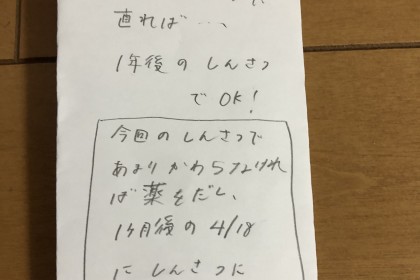 直れば…、
1年後のしんさつ
でOK!
今回のしんさつで
あまりかわらなければ
ば薬をだし、
1ヶ月後の4/18
にしんさつに